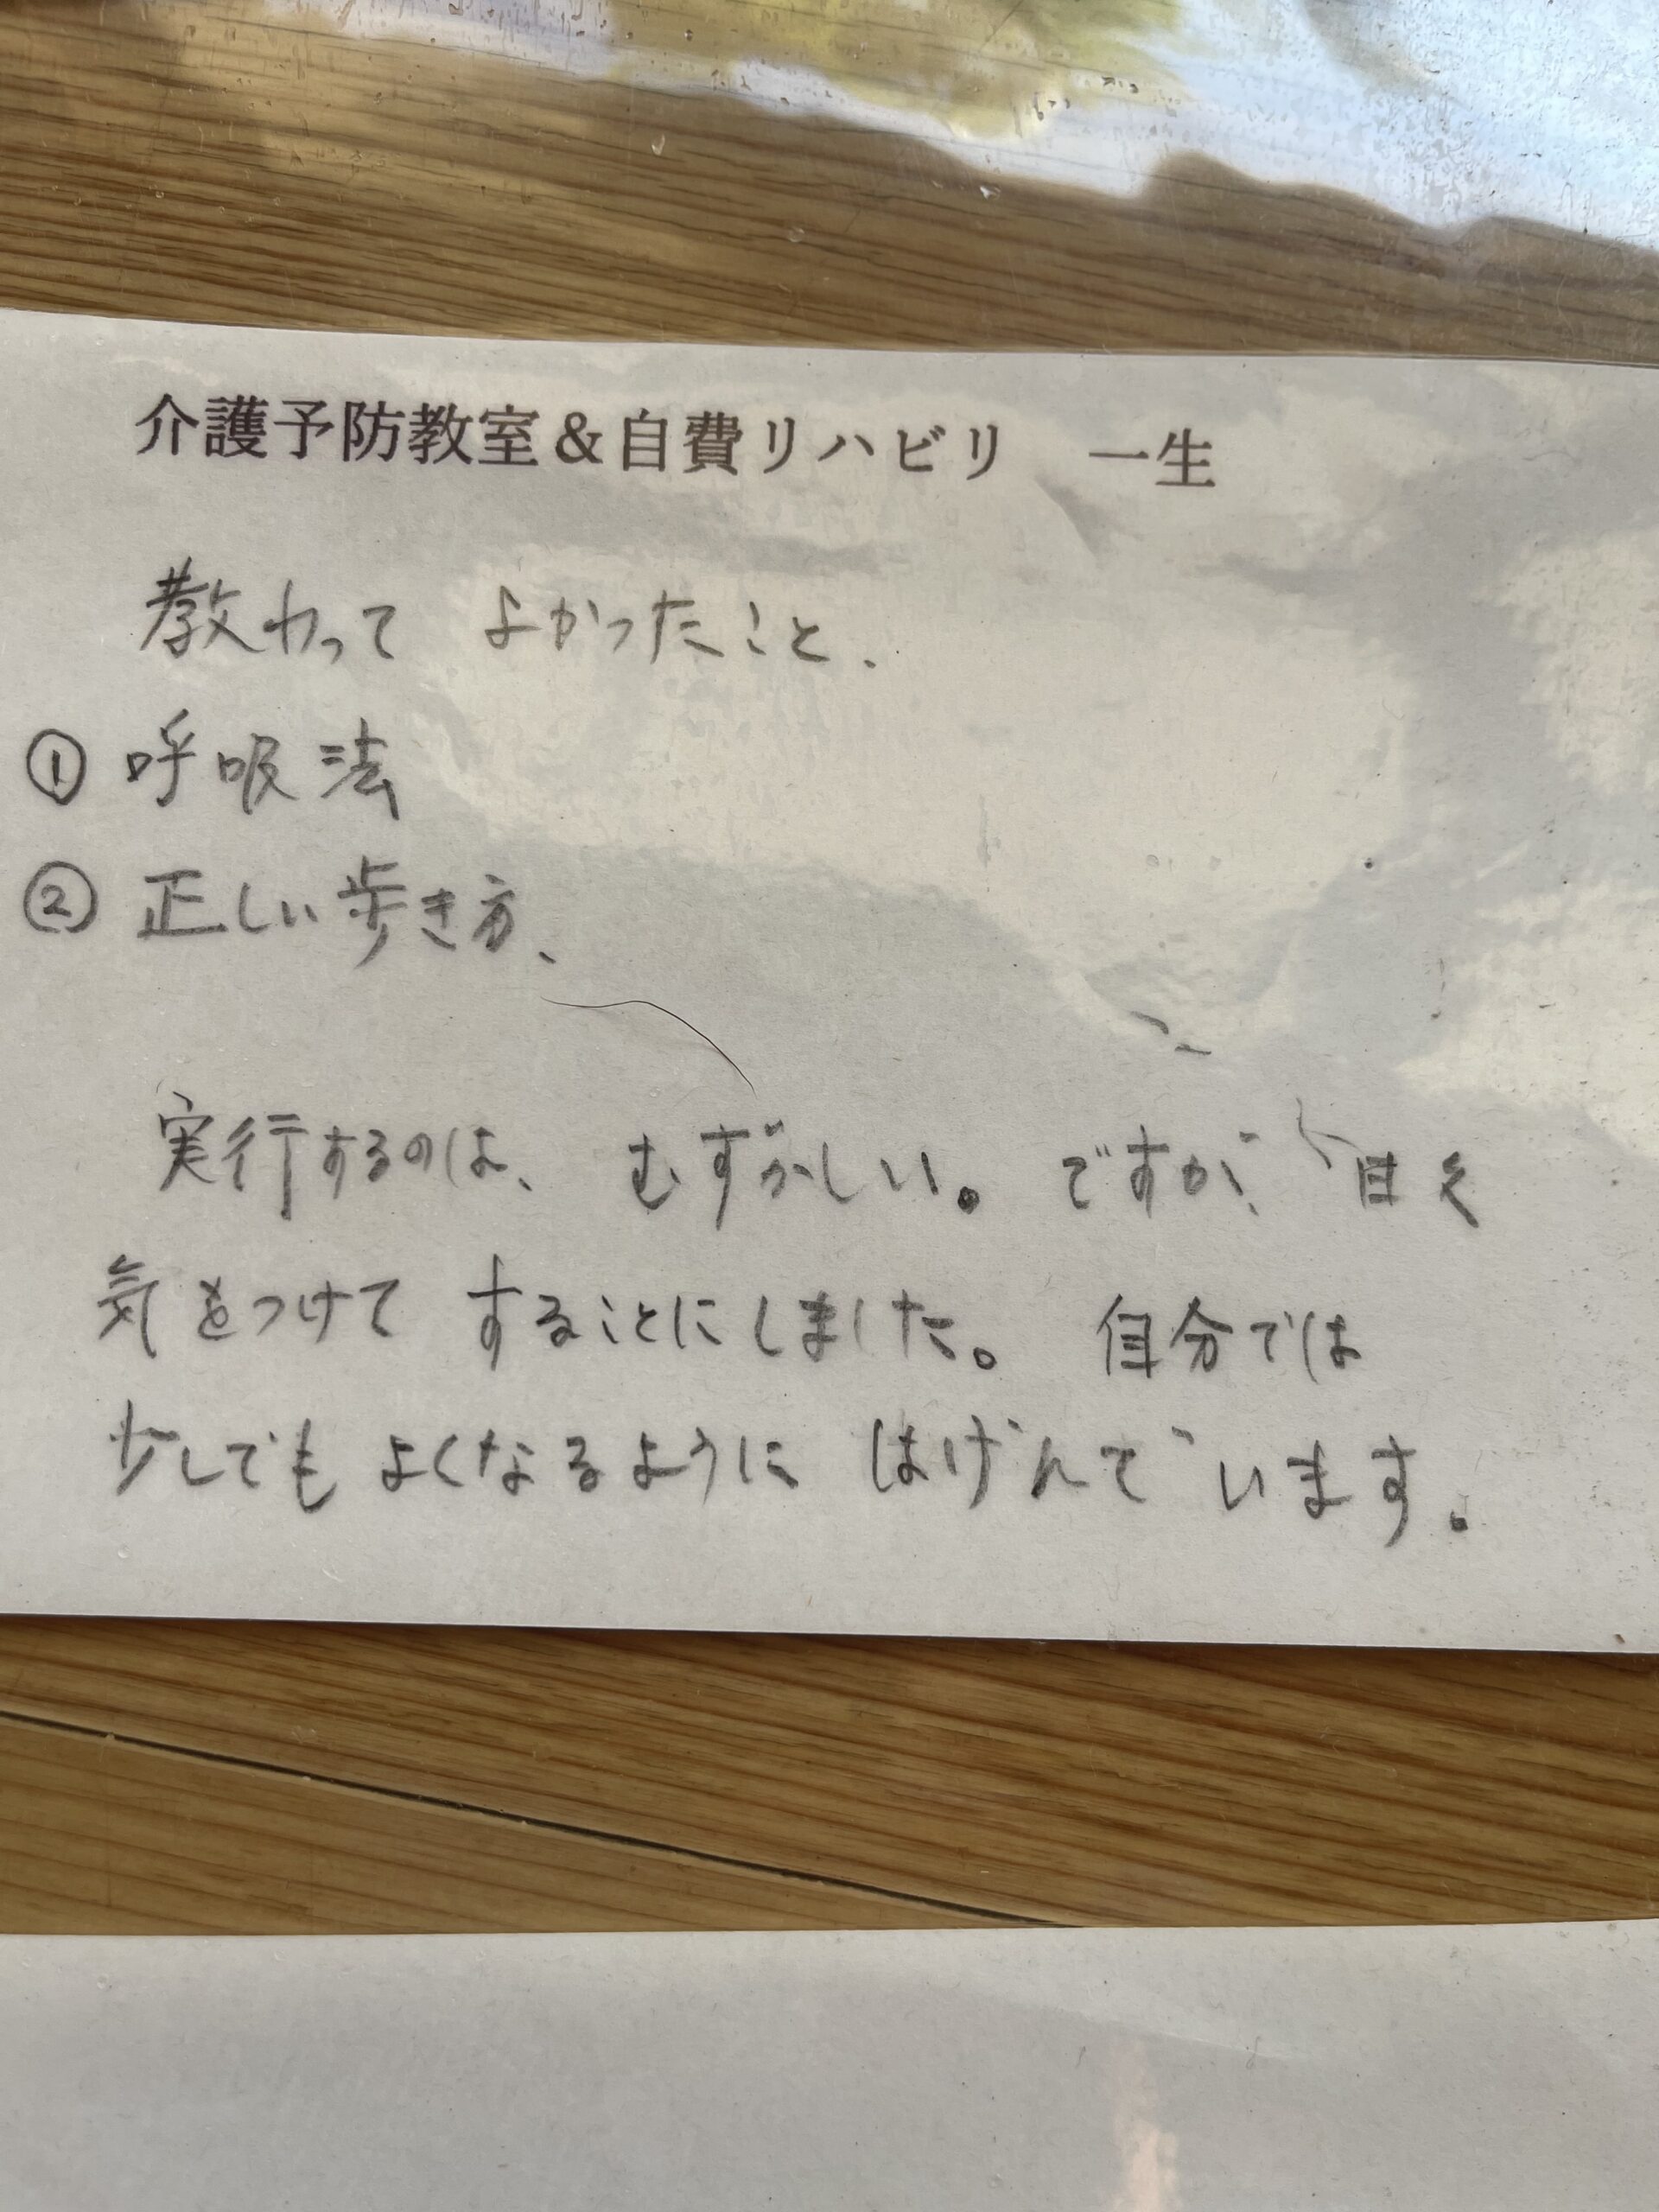 介護予防教室&自費リハビリ　一生
教わって　よかったこと.
① 呼吸法
② 正しい歩き方、
実行するのは、むずかしい。ですが、日々
気をつけて　することにしました。　自分では
少しでも　よくなるように　はげんで　います。